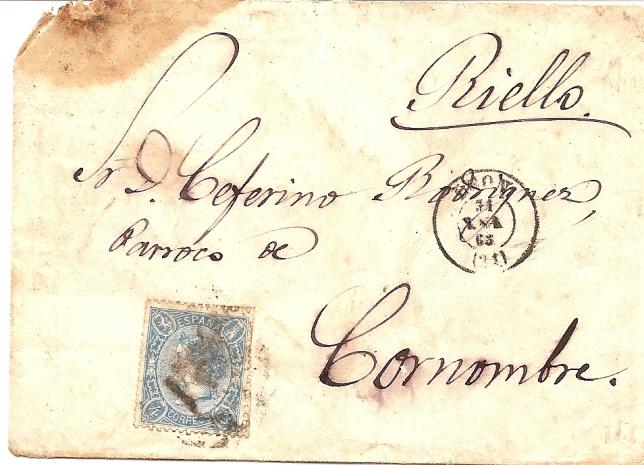 Riello.
Sr. D. Ceferino Rodriguez,
Parroco de
Cornombre.
LEON
31
65
(21)
ESPAÑA
CORREOS